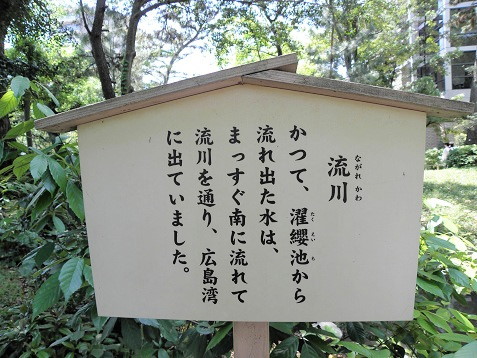 流川
ながれ かわ
かつて、濯纓池から
たく えい ち
流れ出た水は、
まっすぐ南に流れて
流川を通り、広島湾
に出ていました。